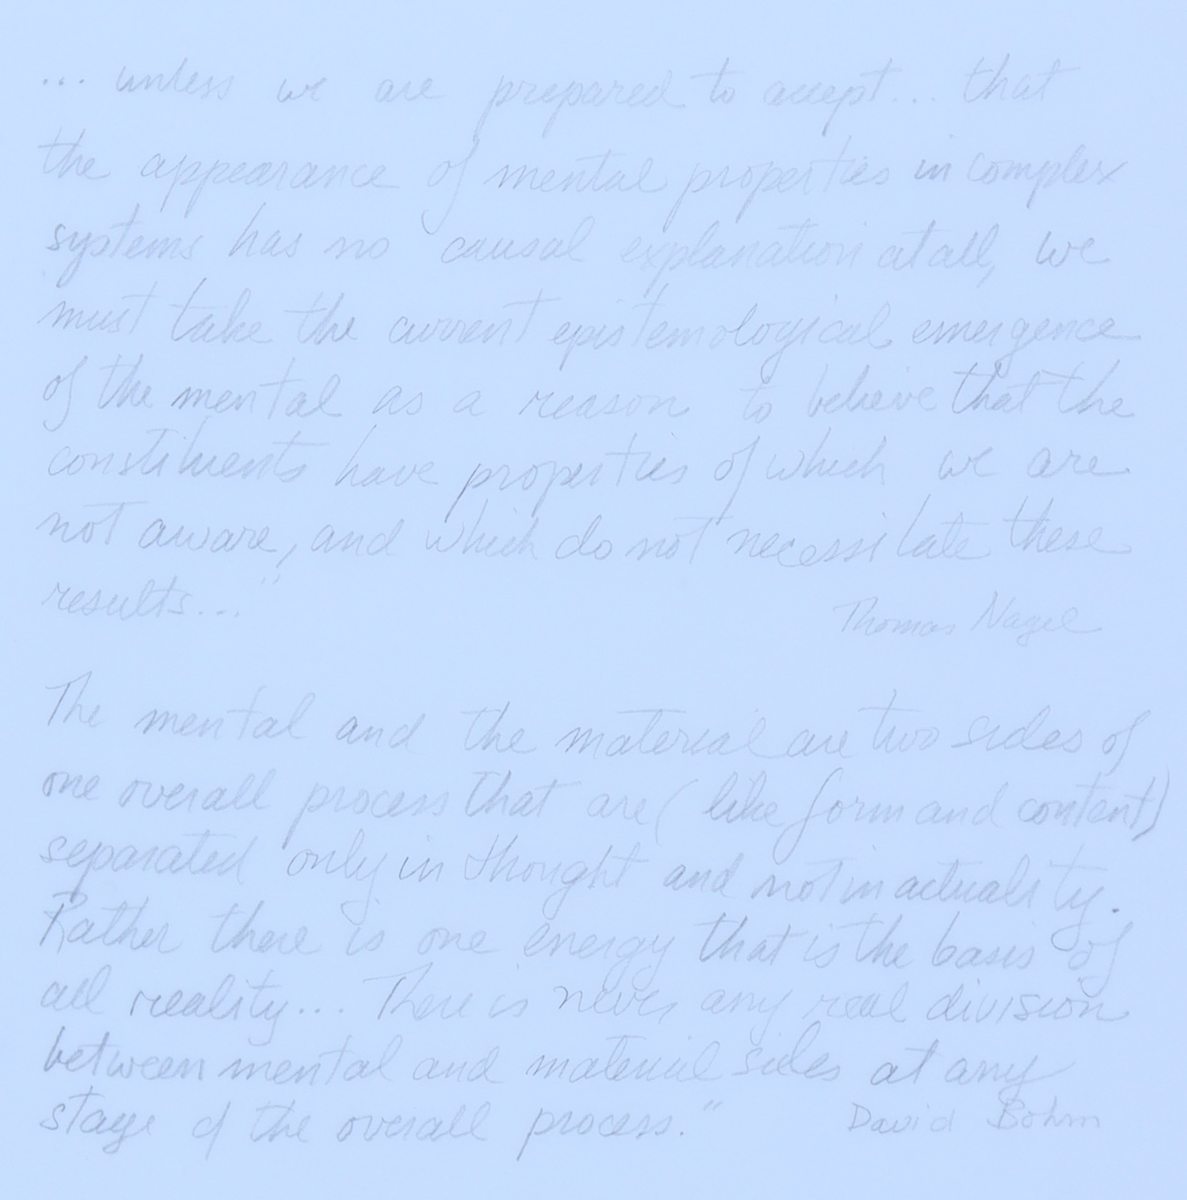 ... unless we are prepared to accept... that
the appearance of mental properties in complex
systems has no causal explanation at all, we
must take the current epistemological emergence
of the mental as a reason to believe that the
constituents have properties of which we are
not aware, and which do not necessitate these
results..."
Thomas Nagel
The mental and the material are two sides of
one overall process that are (like form and content)
separated only in thought and not in actuality.
Rather there is one energy that is the basis of
all reality... There is never any real division
between mental and material sides at any
stage of the overall process."
David Bohm